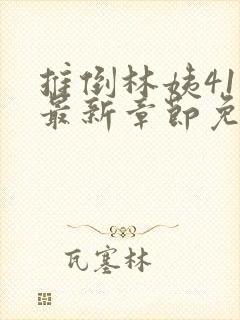 推倒林姨41
最新章节免
瓦塞林